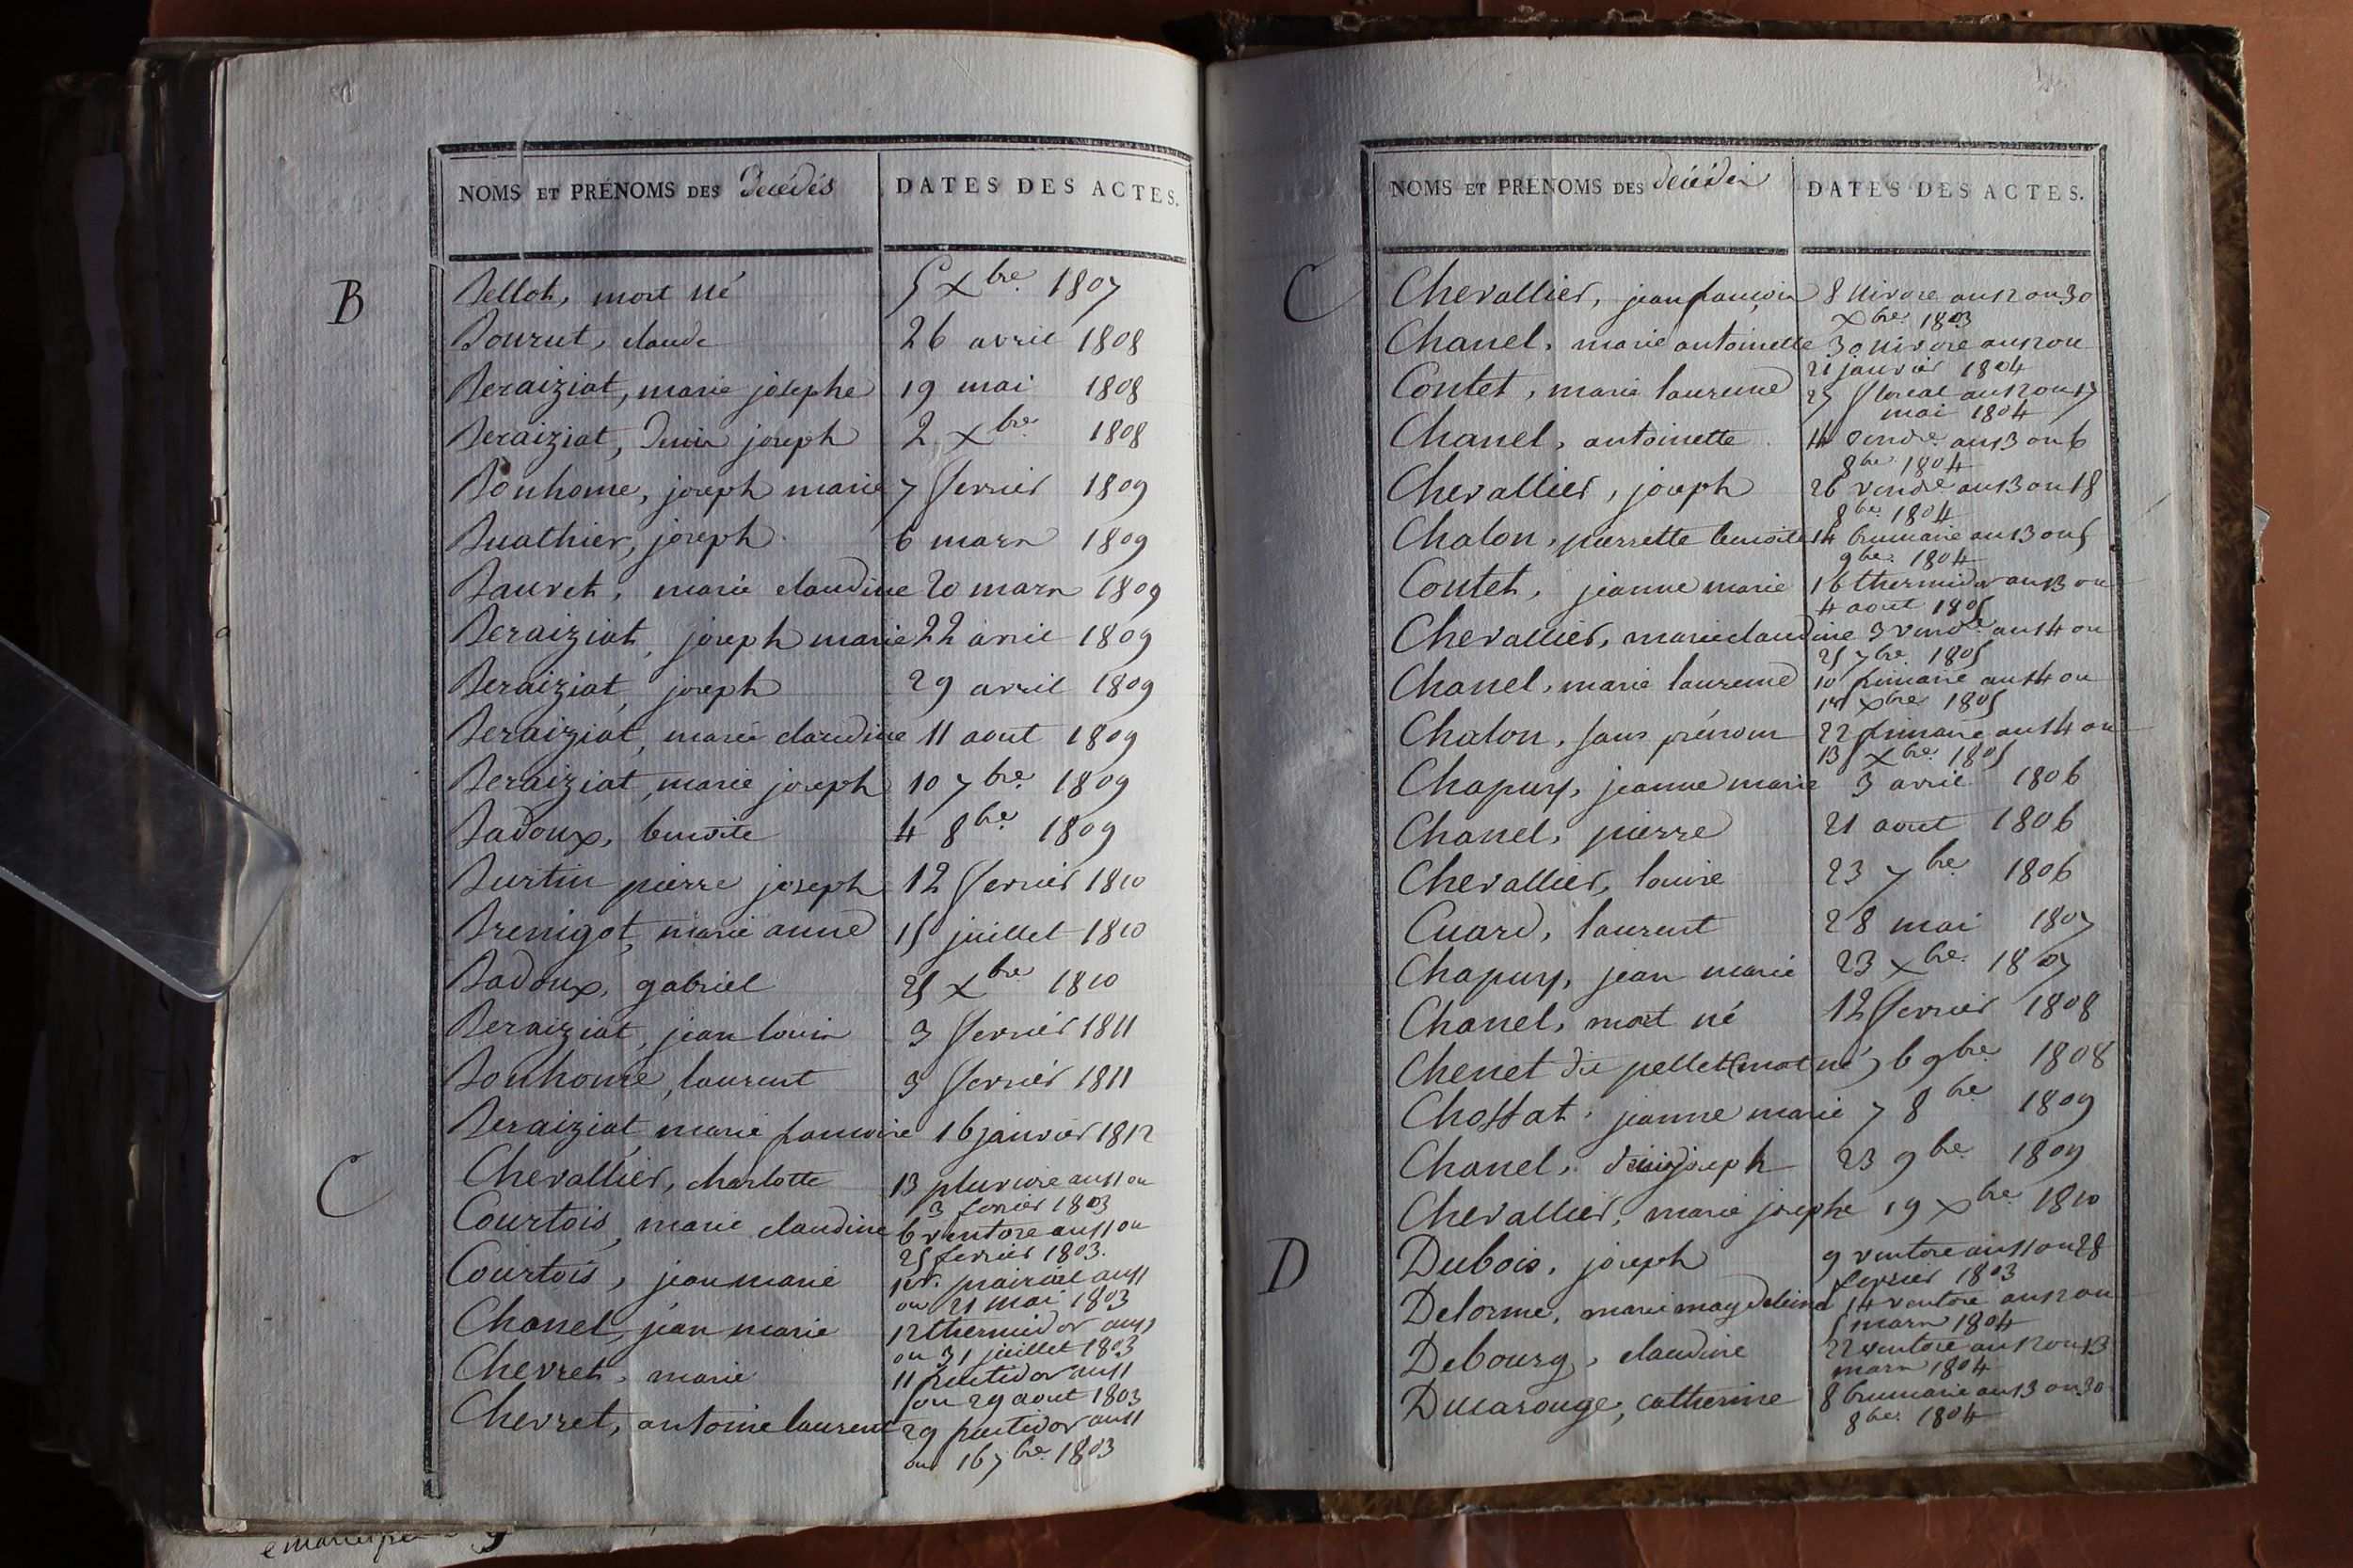 NOMS ET PRÉNOMS DES Décédés DATES DES ACTES.
B
Bellot, mort né 5 Xbre 1807
Bourut, claude 26 avril 1808
Beraiziat, marie josephe 19 mai 1808
Beraiziat, Denis joseph 2 Xbre 1808
Bonhome, joseph marie 7 fevrier 1809
Buathier, joseph 6 mars 1809
Bauret, marie claudine 20 mars 1809
Beraiziat, joseph marie 22 avril 1809
Beraiziat, joseph 29 avril 1809
Beraiziat, marie claudine 11 aout 1809
Beraiziat, marie joseph 10 7bre 1809
Badoux, benoite 4 8bre 1809
Burtin pierre joseph 12 fevrier 1810
Brenigot, marie anne 15 juillet 1810
Badoux, gabriel 25 Xbre 1810
Beraiziat, jean louis 3 fevrier 1811
Bonhome, laurent 3 fevrier 1811
Beraiziat, marie francoise 16 janvier 1812
C
Chevallier, charlotte 13 pluviose an 11 ou
3 fevrier 1803
Courtois, marie claudine 6 ventose an 11 ou
25 fevrier 1803.
Courtois, jean marie 1er. prairial an 11
ou 21 mai 1803
Chanel, jean marie 12 thermidor an 11
ou 31 juillet 1803
Chevret, marie 11 fructidor an 11
ou 29 aout 1803
Chevret, antoine laurent 29 fructidor an 11
ou 16 7bre 1803
NOMS ET PRÉNOMS DES décédés DATES DES ACTES.
C
Chevallier, jean françois 8 Nivose an 12 ou 30
Xbre 1803
Chanel, marie antoinette 30 Nivose an 12 ou
21 janvier 1804
Contet, marie laurence 27 floreal an 12 ou 17
mai 1804
Chanel, antoinette 14 vendre an 13 ou 6
8bre 1804
Chevallier, joseph 26 vendre an 13 ou 18
8bre 1804
Chalon, pierrette benoite 14 brumaire an 13 ou 5
9bre 1804
Contet, jeanne marie 16 thermidor an 13 ou
4 aout 1805
Chevallier, marie claudine 3 vendre an 14 ou
25 7bre 1805
Chanel, marie laurence 10 frimaire an 14 ou
1er Xbre 1805
Chalon, sans prénom 22 frimaire an 14 ou
13 Xbre 1805
Chapuy, jeanne marie 3 avril 1806
Chanel, pierre 21 aout 1806
Chevallier, louise 23 7bre 1806
Cuard, laurent 28 mai 1807
Chapuy, jean marie 23 Xbre 1807
Chanel, mort né 12 fevrier 1808
Chenet dit pellet (mort né) 6 9bre 1808
Chossat, jeanne marie 7 8bre 1809
Chanel, denis joseph 23 9bre 1809
Chevallier, marie josephe 19 Xbre 1810
D
Dubois, joseph 9 ventose an 11 ou 28
fevrier 1803
Delorme, marie magdeleine 14 ventose an 12 ou
5 mars 1804
Debourg, claudine 22 ventose an 12 ou 13
mars 1804
Ducarouge, catherine 8 brumaire an 13 ou 30
8bre 1804